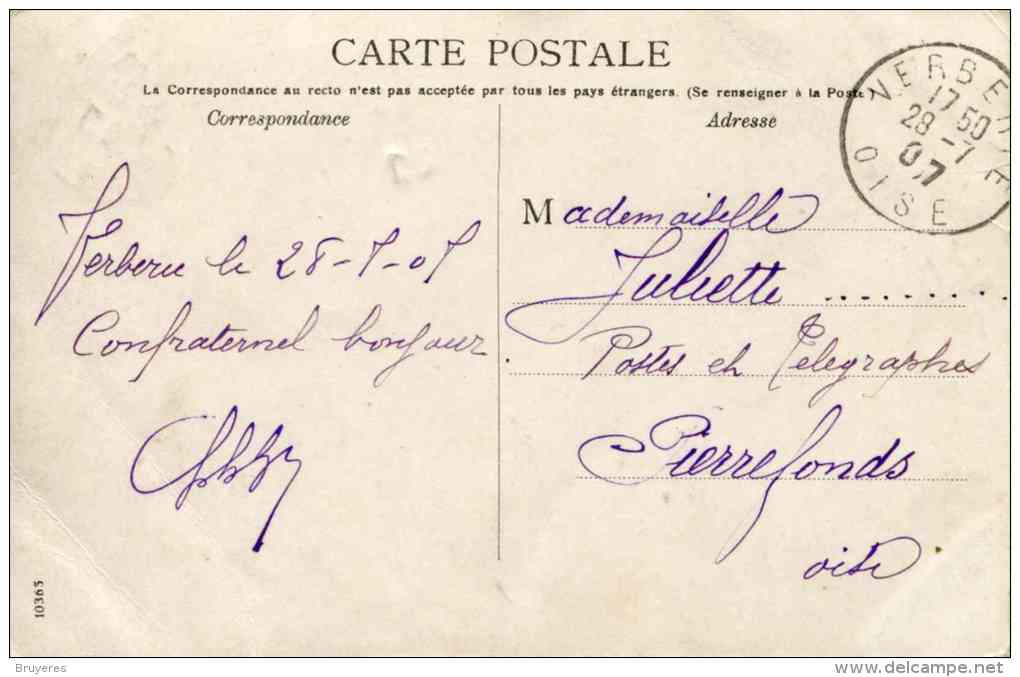 CARTE POSTALE
La Correspondance au recto n'est pas acceptée par tous les pays étrangers. (Se renseigner à la Poste)
Correspondance
Verberie le 28-7-07
Confraternel bonjour
Adresse
Mademoiselle
Juliette ..........
Postes et Télégraphes
Pierrefonds
oise
VERBERIE
17 50
28 -7
07
OISE
10365
© Bruyeres
http://www.delcampe.net